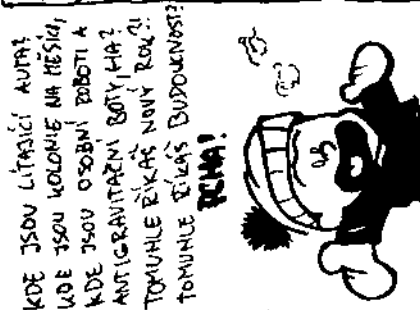 KDE JSOU LÍTAJÍCÍ AUTA?
KDE JSOU KOLONIE NA MĚSÍCI,
KDE JSOU OSOBNÍ ROBOTI A
ANTIGRAVITAČNÍ BOTY, HA?
TOMUHLE ŘÍKÁŠ NOVÝ ROK?!
TOMUHLE ŘÍKÁŠ BUDOUCNOST?
PCHA!